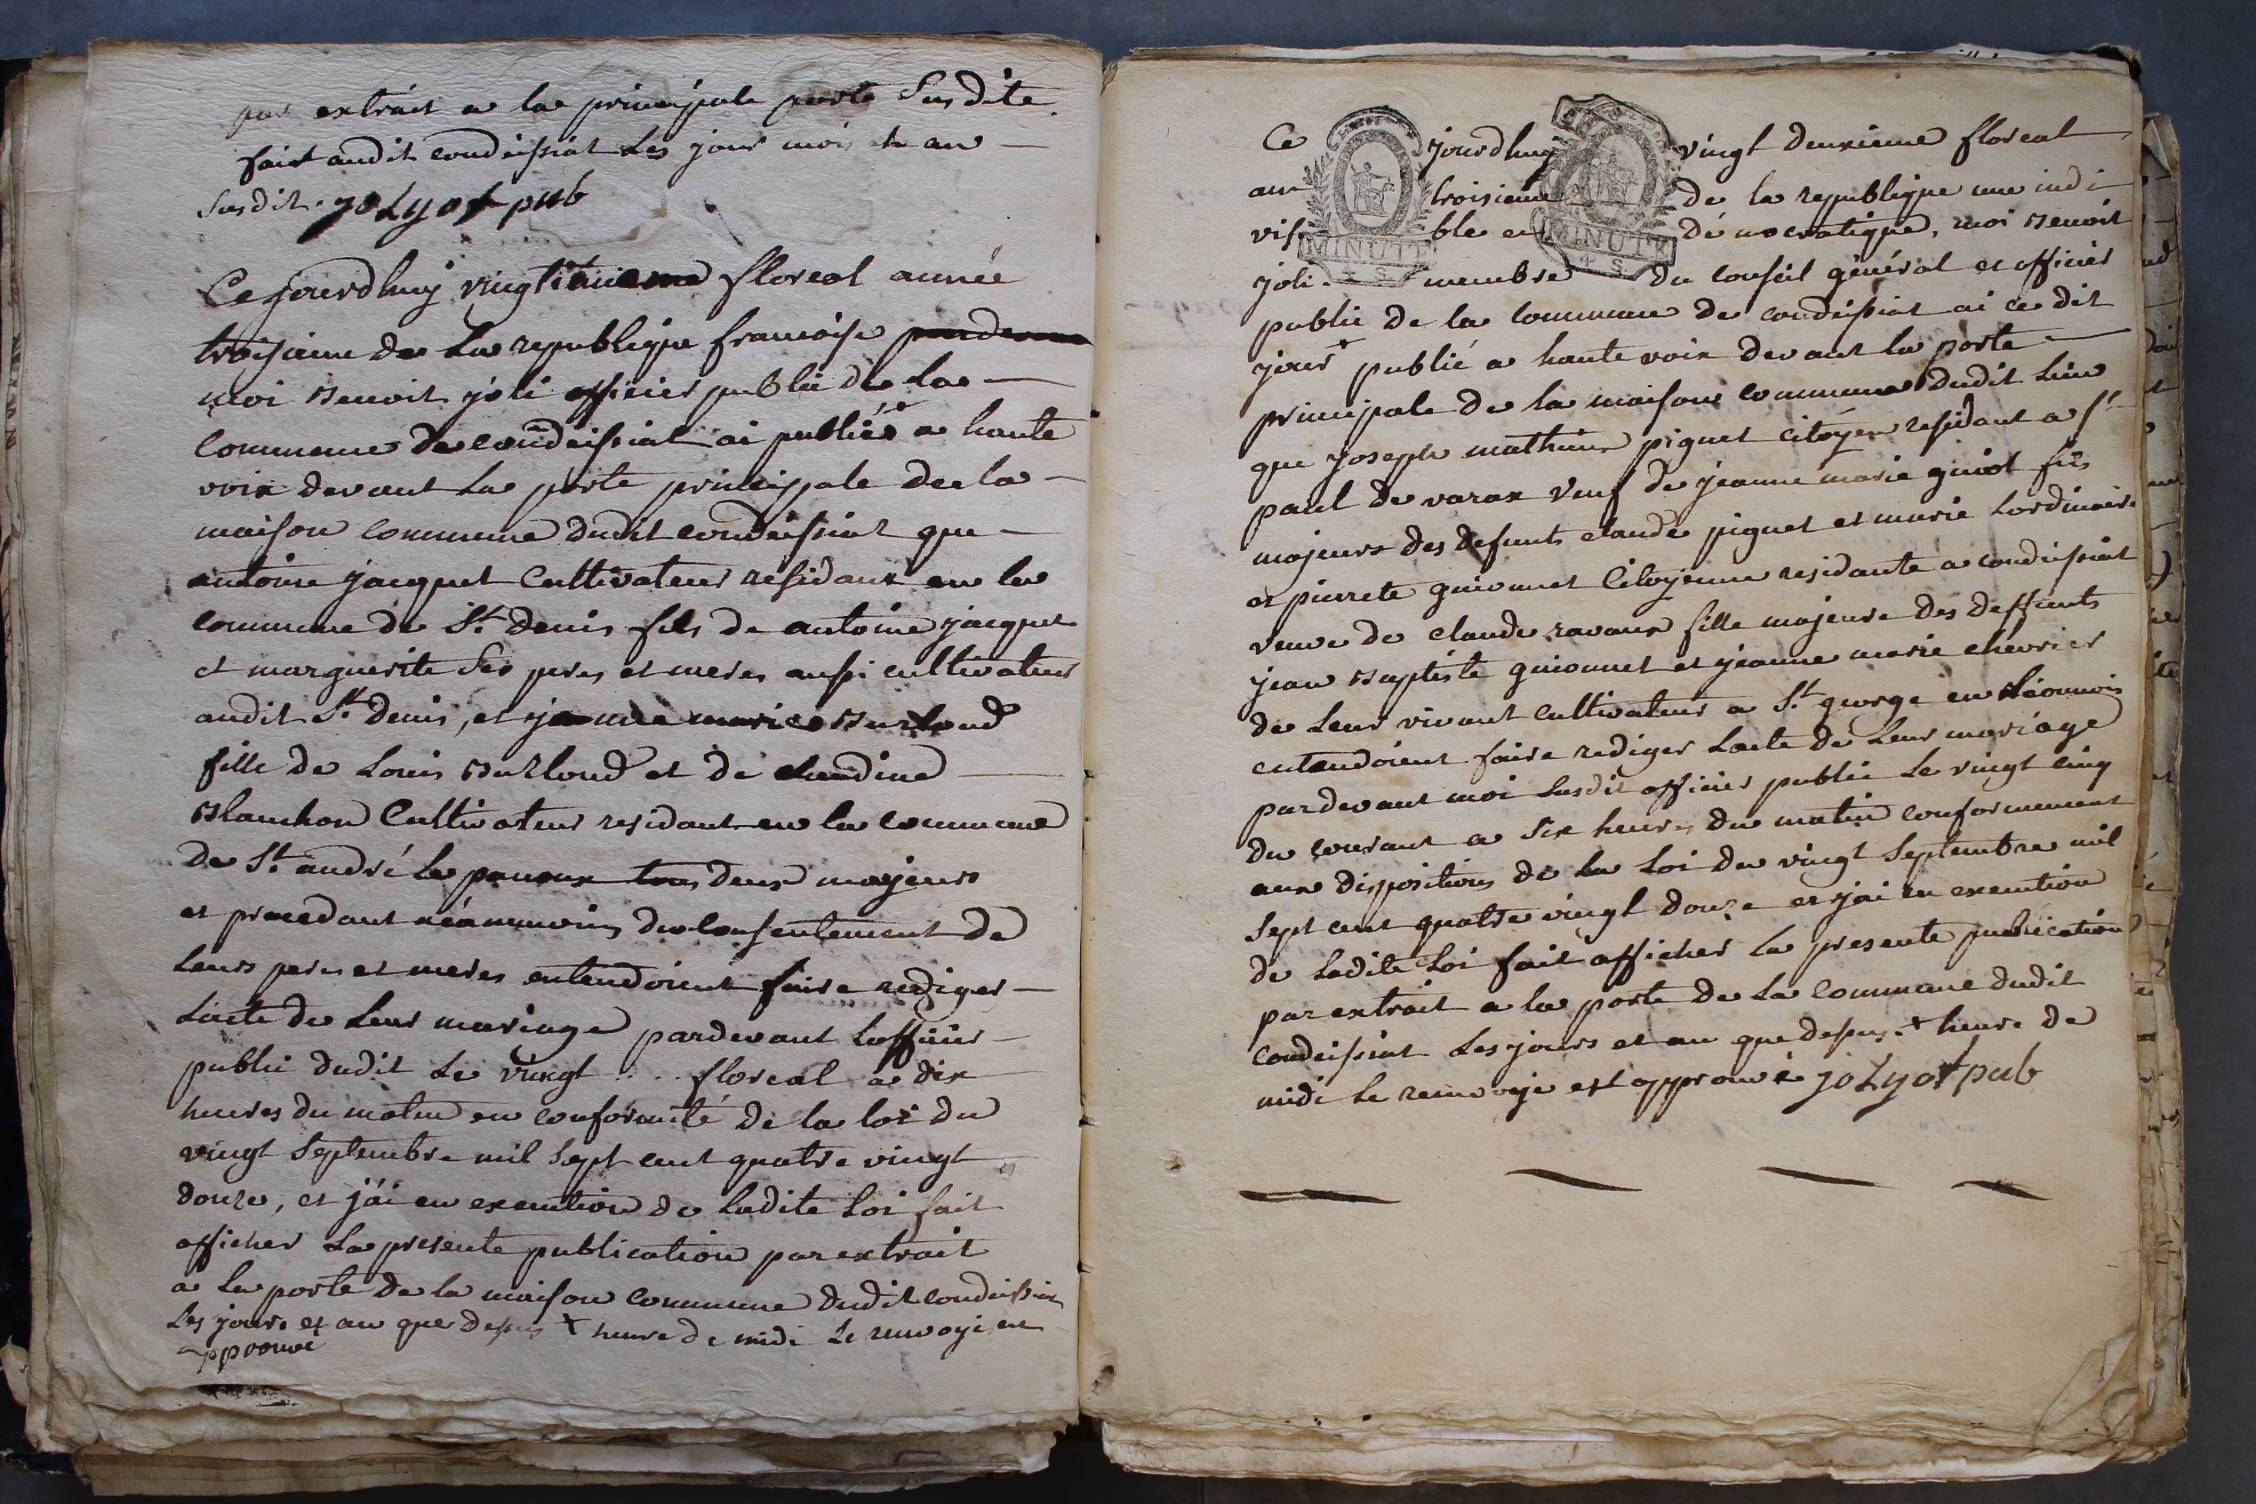 par extrait a la principale porte Susdite.
fait audit condeissiat Les jour mois et an
Susdit. jolyof pub
Ce jourdhuy vingtieme floreal année
troisieme de La republique francoise
moi Benoit joli officier public de la
commune de condeissiat ai publié + a haute
voix devant La porte principale de la
maison commune dudit condeissiat que
antoine jacquet Cultivateur residant en la
commune de St. Denis fils de antoine jacquet
et marguerite Ses peres et meres aussi cultivateurs
audit St. Denis, et jeanne marie Burloud
fille de Louis Burloud et de Claudine
Blanchon Cultivateur residant en la commune
de St. andré le panoux tous deux majeurs
et procedant néanmoins du consentement de
Leurs peres et meres entendoient faire rediger
Lacte de Leur mariage pardevant Lofficier
public dudit Le vingt .... floreal a dix
heures du matin en conformité de la loi du
vingt Septembre mil Sept cent quatre vingt
douze, et j'ai en execution de Ladite Loi fait
afficher La presente publication par extrait
a La porte de la maison commune dudit condeissiat
Les jours et an que dessus + heure de midi Le renvoyi en
approuvé
Ce jourdhuy vingt deuxieme floreal
an troisieme de la republique une indi
visible et démocratique, moi Benoit
joli membre du Conseil général et officier
public de la Commune de condeissiat ai ce dit
jour + publié a haute voix devant la porte
principale de la maison commune dudit Lieu
que joseph mathieu piquet citoyen residant a St
paul de varax veuf de jeanne marie guiot fils
majeur des defunts claude piquet et marie Lordinaire
et pierrete guionnet Citoyenne residante a condeissiat
veuve de claude ravaux fille majeure des deffunts
jean Baptiste guionnet et jeanne marie chevrier
de Leur vivant cultivateurs a St. george en
entendoient faire rediger Lacte de Leur mariage
pardevant moi Susdit officier public Le vingt cinq
du courant a Six heures du matin conformement
aux dispositions de La Loi du vingt Septembre mil
Sept cent quatre vingt douze et j'ai en execution
de Ladite Loi fait afficher La presente publication
par extrait a la porte de La Commune dudit
condeissiat Les jours et an que dessus. + heure de
midi Le renvoye est approuvé jolyof pub
MINUTE
4 S.
MINUTE
4 S.